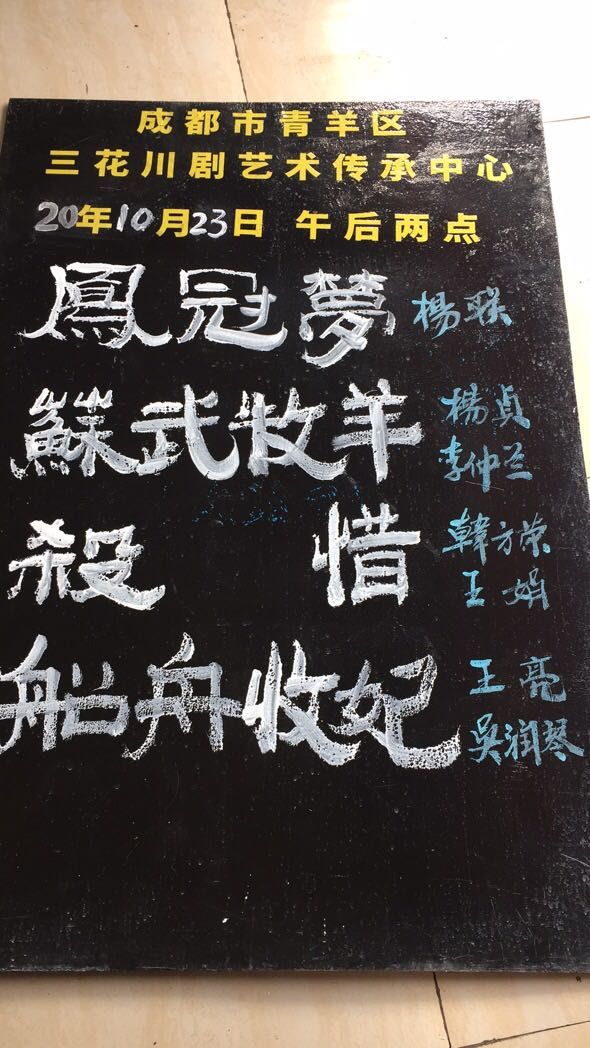 成都市青羊区
三花川剧艺术传承中心
20年10月23日 午后两点
鳳冠夢 楊联
蘇武牧羊 楊貞
李仲兰
殺 惜 韓方荣
王娟
船舟收妃 王亮
吳润琴